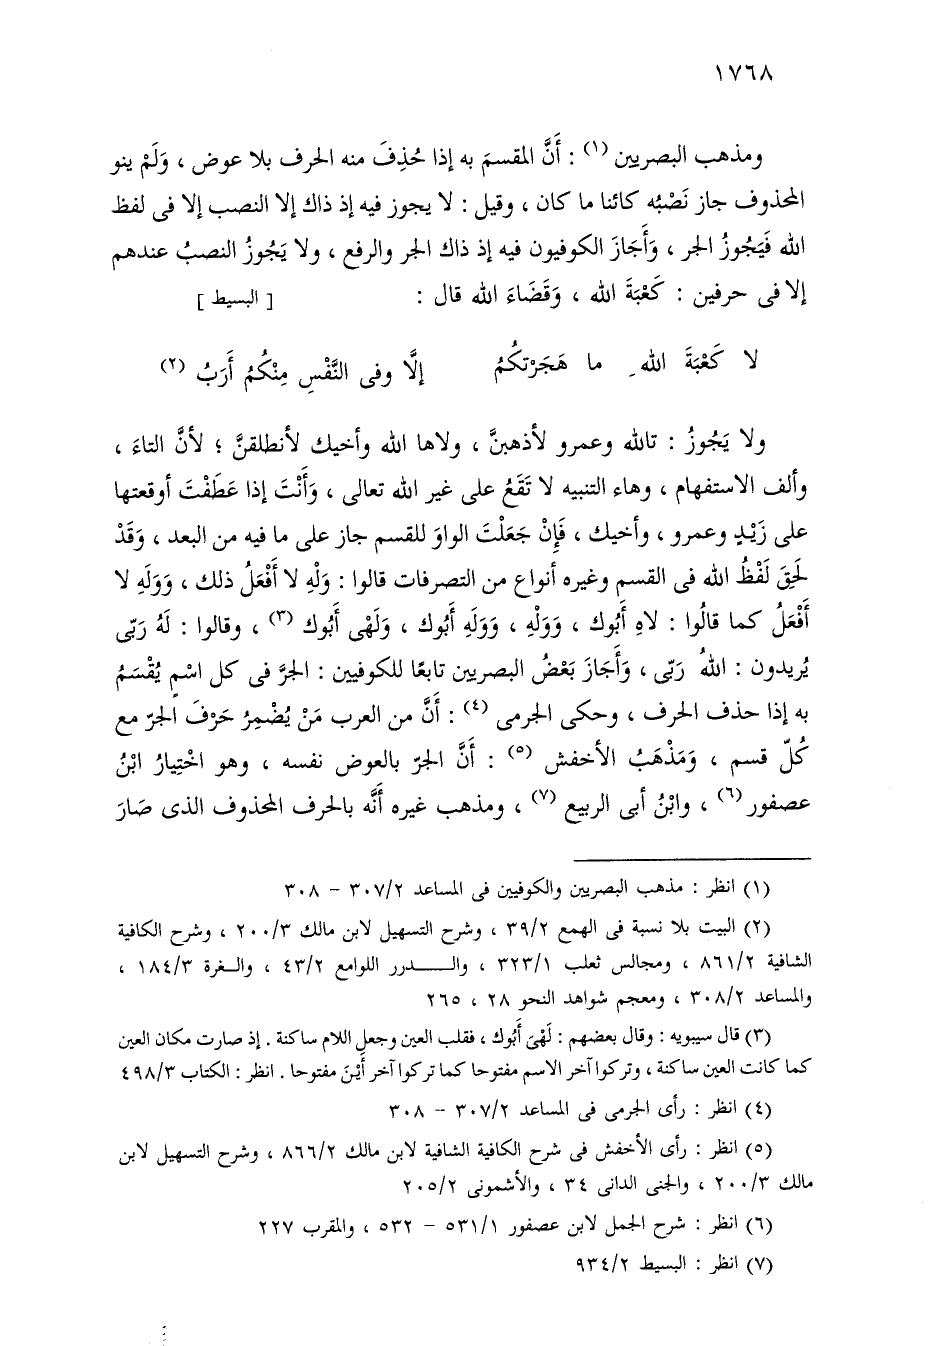 ١٧٦٨
ومذهب البصريين (١) : أَنَّ المقسمَ به إذا حُذِفَ منه الحرف بلا عوض ، وَلَمْ ينو
المحذوف جاز نَصْبُه كائنا ما كان ، وقيل : لا يجوز فيه إذ ذاك إلا النصب إلا فى لفظ
الله فَيَجُوزُ الجر ، وَأَجَازَ الكوفيون فيه إذ ذاك الجر والرفع ، ولا يَجُوزُ النصبُ عندهم
إلا فى حرفين : كَعْبَةَ الله ، وَقَضَاءَ الله قال : [ البسيط ]
لا كَعْبَةَ اللهِ ما هَجَرْتكُمُ إلَّا وفى النَّفْسِ مِنْكُم أَرَبُ (٢)
ولا يَجُوزُ : تالله وعمرو لأذهبنَّ ، ولاها الله وأخيك لأنطلقنَّ ؛ لأنَّ التاءَ ،
وألف الاستفهام ، وهاء التنبيه لا تَقَعُ على غير الله تعالى ، وَأَنْتَ إذا عَطَفْتَ أوقعتها
على زَيْدٍ وعمرو ، وأخيك ، فَإِنْ جَعَلْتَ الواوَ للقسم جاز على ما فيه من البعد ، وَقَدْ
لَحِقَ لَفْظُ الله فى القسم وغيره أنواع من التصرفات قالوا : وَلْهِ لا أَفْعَلُ ذلك ، وَوَلَهِ لا
أَفْعَلُ كما قالُوا : لاهِ أَبُوك ، وَوَلْهِ ، وَوَلَهِ أَبُوك ، وَلَهْى أَبُوك (٣) ، وقالوا : لَهُ رَبّى
يُريدون : اللهُ رَبّى ، وَأَجَازَ بَعْضُ البصريين تابعًا للكوفيين : الجرَّ فى كل اسْمٍ يُقْسَمُ
به إذا حذف الحرف ، وحكى الجرمى (٤) : أَنَّ من العرب مَنْ يُضْمِرُ حَرْفَ الجَرّ مع
كُلّ قسم ، وَمَذْهَبُ الأخفش (٥) : أَنَّ الجرّ بالعوض نفسه ، وهو اخْتِيارُ ابْنُ
عصفور (٦) ، وابْنُ أبى الربيع (٧) ، ومذهب غيره أَنَّه بالحرف المحذوف الذى صَارَ
(١) انظر : مذهب البصريين والكوفيين فى المساعد ٣٠٧/٢ – ٣٠٨
(٢) البيت بلا نسبة فى الهمع ٣٩/٢ ، وشرح التسهيل لابن مالك ٢٠٠/٣ ، وشرح الكافية
الشافية ٨٦١/٢ ، ومجالس ثعلب ٣٢٣/١ ، والـــدرر اللوامع ٤٣/٢ ، والـغرة ١٨٤/٣ ،
والمساعد ٣٠٨/٢ ، ومعجم شواهد النحو ٢٨ ، ٢٦٥
(٣) قال سيبويه : وقال بعضهم : لَهْىَ أَبُوك ، فقلب العين وجعل اللام ساكنة . إذ صارت مكان العين
كما كانت العين ساكنة ، وتركوا آخر الاسم مفتوحا كما تركوا آخر أَيْنَ مفتوحا . انظر : الكتاب ٤٩٨/٣
(٤) انظر : رأى الجرمى فى المساعد ٣٠٧/٢ – ٣٠٨
(٥) انظر : رأى الأخفش فى شرح الكافية الشافية لابن مالك ٨٦٦/٢ ، وشرح التسهيل لابن
مالك ٢٠٠/٣ ، والجنى الدانى ٣٤ ، والأشمونى ٢٠٥/٢
(٦) انظر : شرح الجمل لابن عصفور ٥٣١/١ – ٥٣٢ ، والمقرب ٢٢٧
(٧) انظر : البسيط ٩٣٤/٢